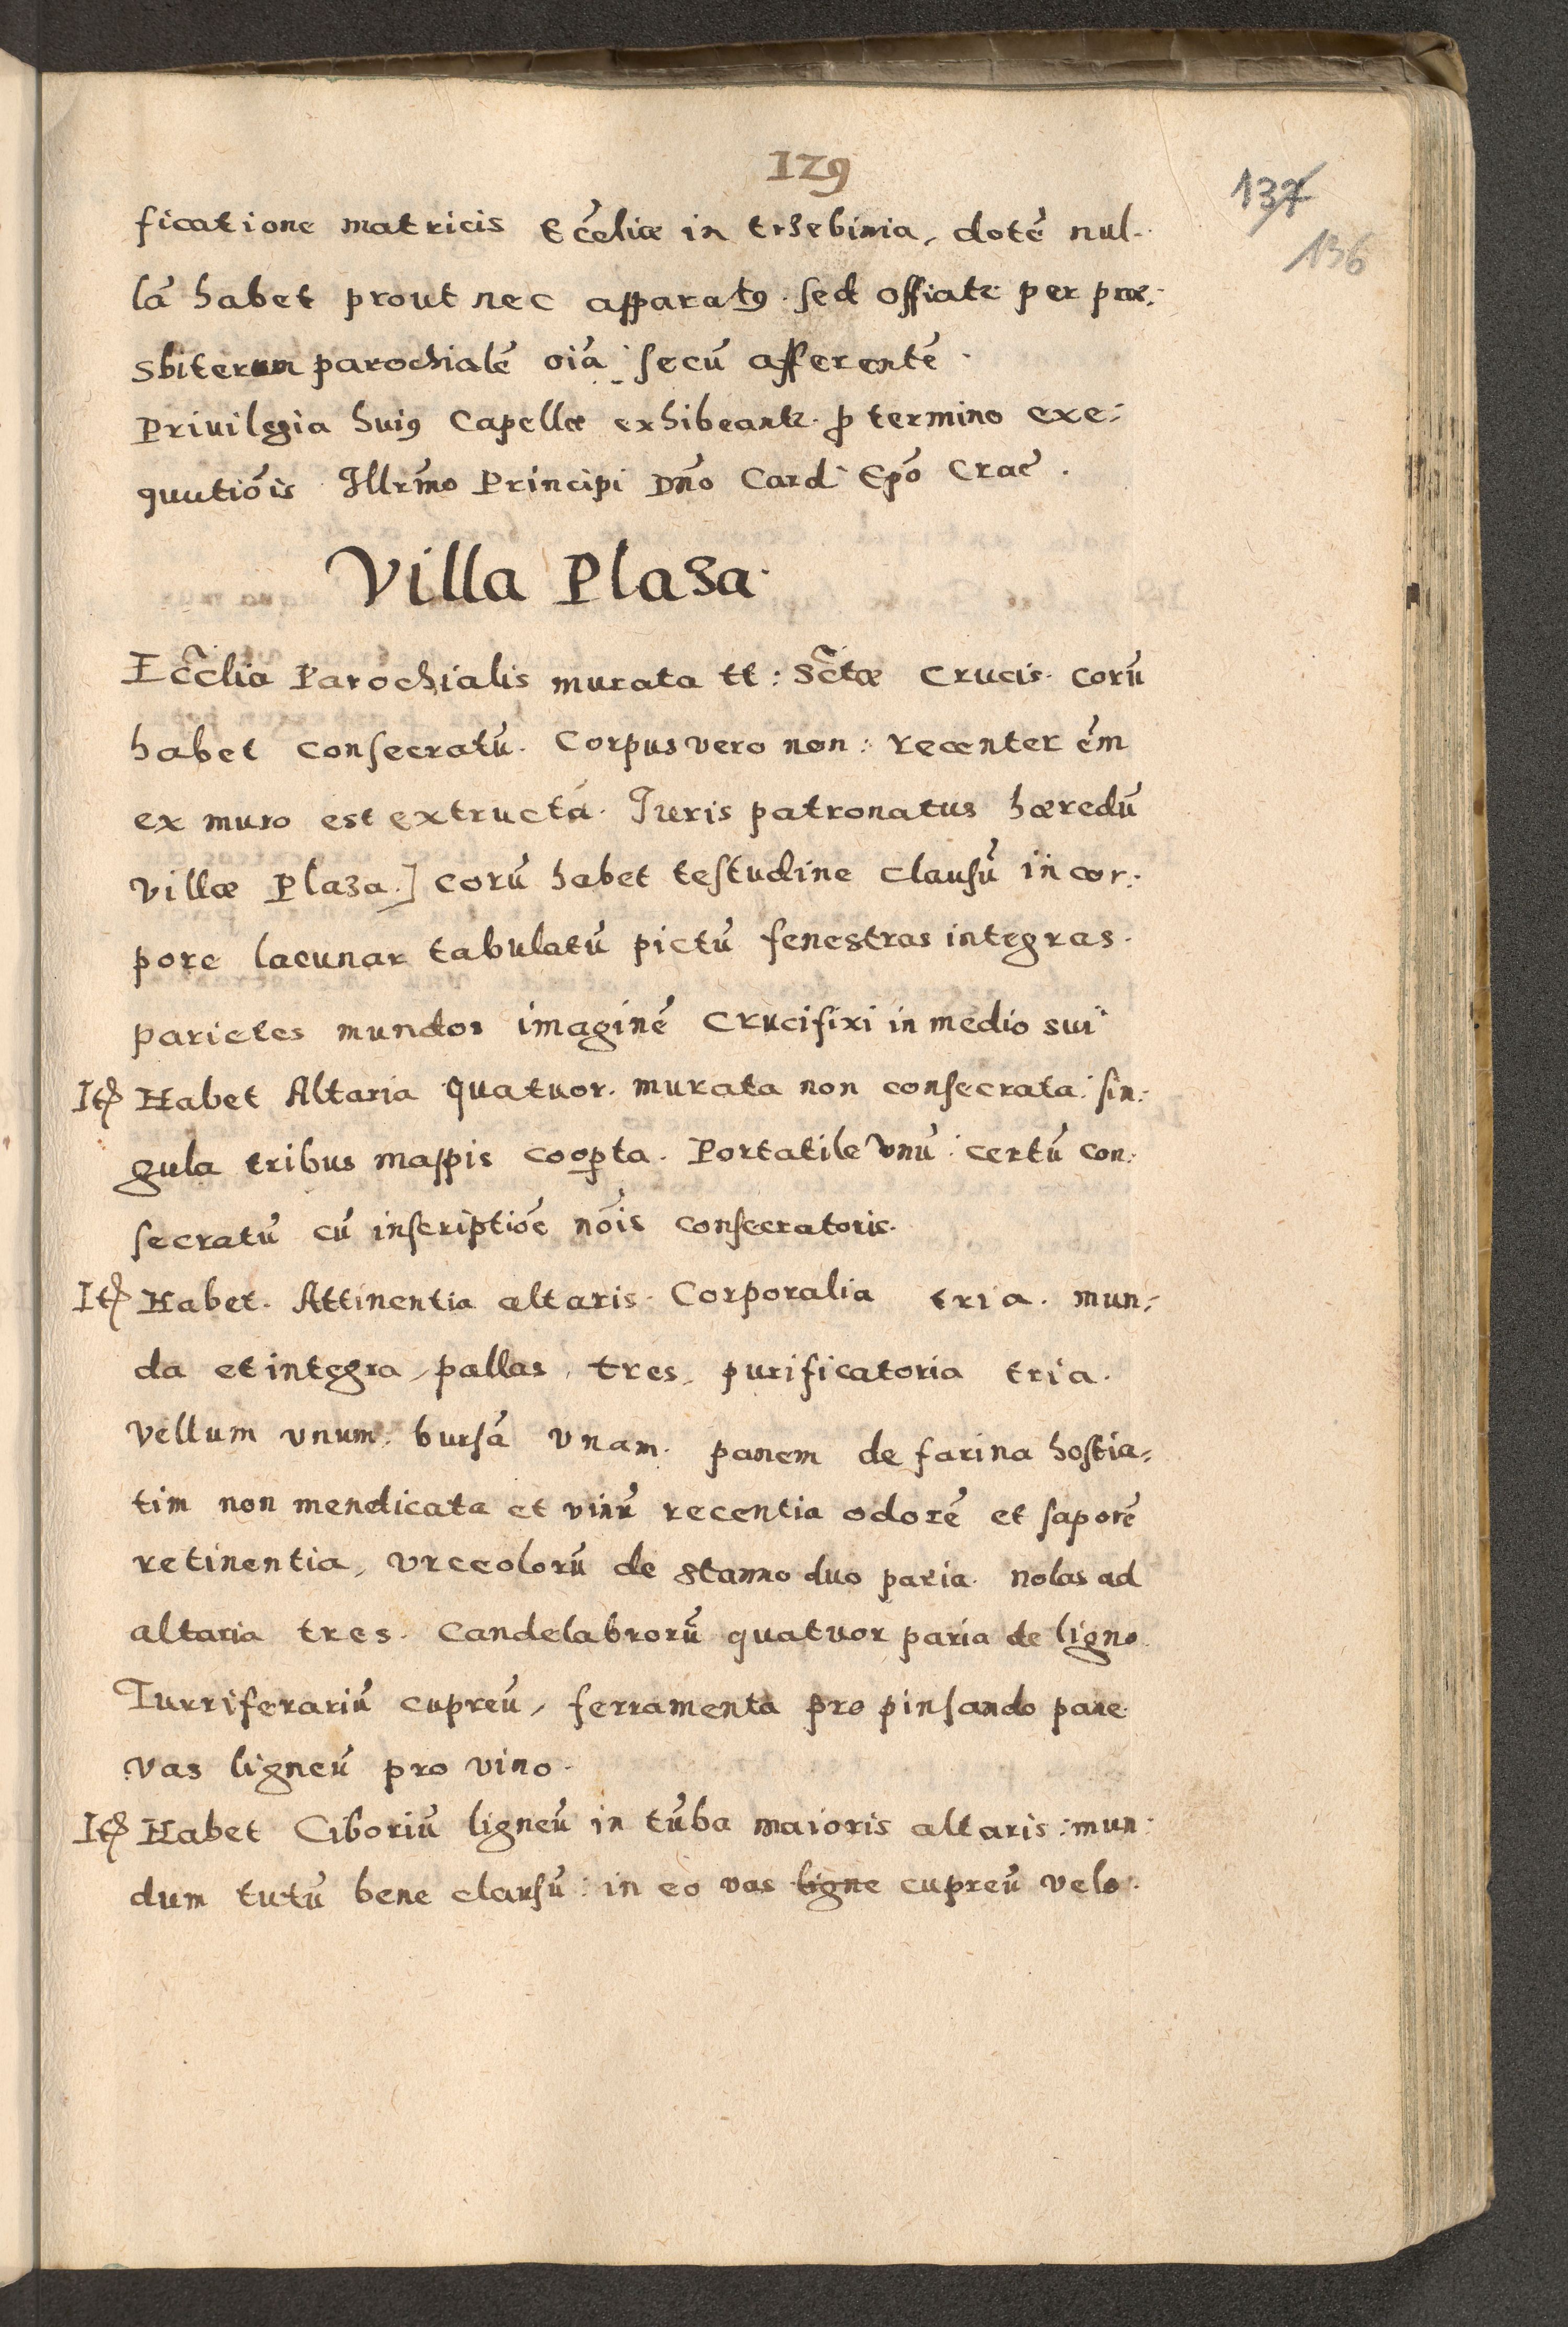 129
137
136
ficatione matricis Eccēliæ in trzebinia, dotē nul-
lā habet prout nec apparatꝯ. sed offiatr per præ-
sbiterum parochialē oīa secū afferentē.
Priuilegia huiꝯ Capellæ exhibeantr. ꝓ termino exe-
quutiōis Illrm̄o Principi Dn̄o Card Epō Crac̄.
Villa Plaza.
Ecc̄lia Parochialis murata tt: Sctǣ Crucis. Corū
habet consecratū. Corpus vero non: recenter ēm
ex muro est extructā. Iuris patronatus hæredū
villæ Plaza.] corū habet testudine clausū in cor-
pore lacunar tabulatū pictū fenestras integras.
parietes mundos imaginē Crucifixi in medio sui
Itꝭ Habet Altaria quatuor. murata non consecrata: sin-
gula tribus mappis cooꝑta. Portatile vnū certū con-
secratū cū inscriptiōe nōis consecratoris.
Itꝭ Habet. Attinentia altaris. Corporalia tria. mun-
da et integra, pallas, tres, purificatoria tria.
vellum vnum. bursā vnam. panem de farina hostia-
tim non mendicata et vinū recentia odorē et saporē
retinentia, vrceolorū de stanno duo paria. nolas ad
altaria tres. Candelabrorū quatuor paria de ligno.
Turriferariū cupreū, ferramenta pro pinsando pane.
vas ligneū pro vino.
Itꝭ Habet Ciboriū ligneū in tūba maioris altaris: mun-
dum tutū bene clausū: in eo vas ligne cupreū velo.